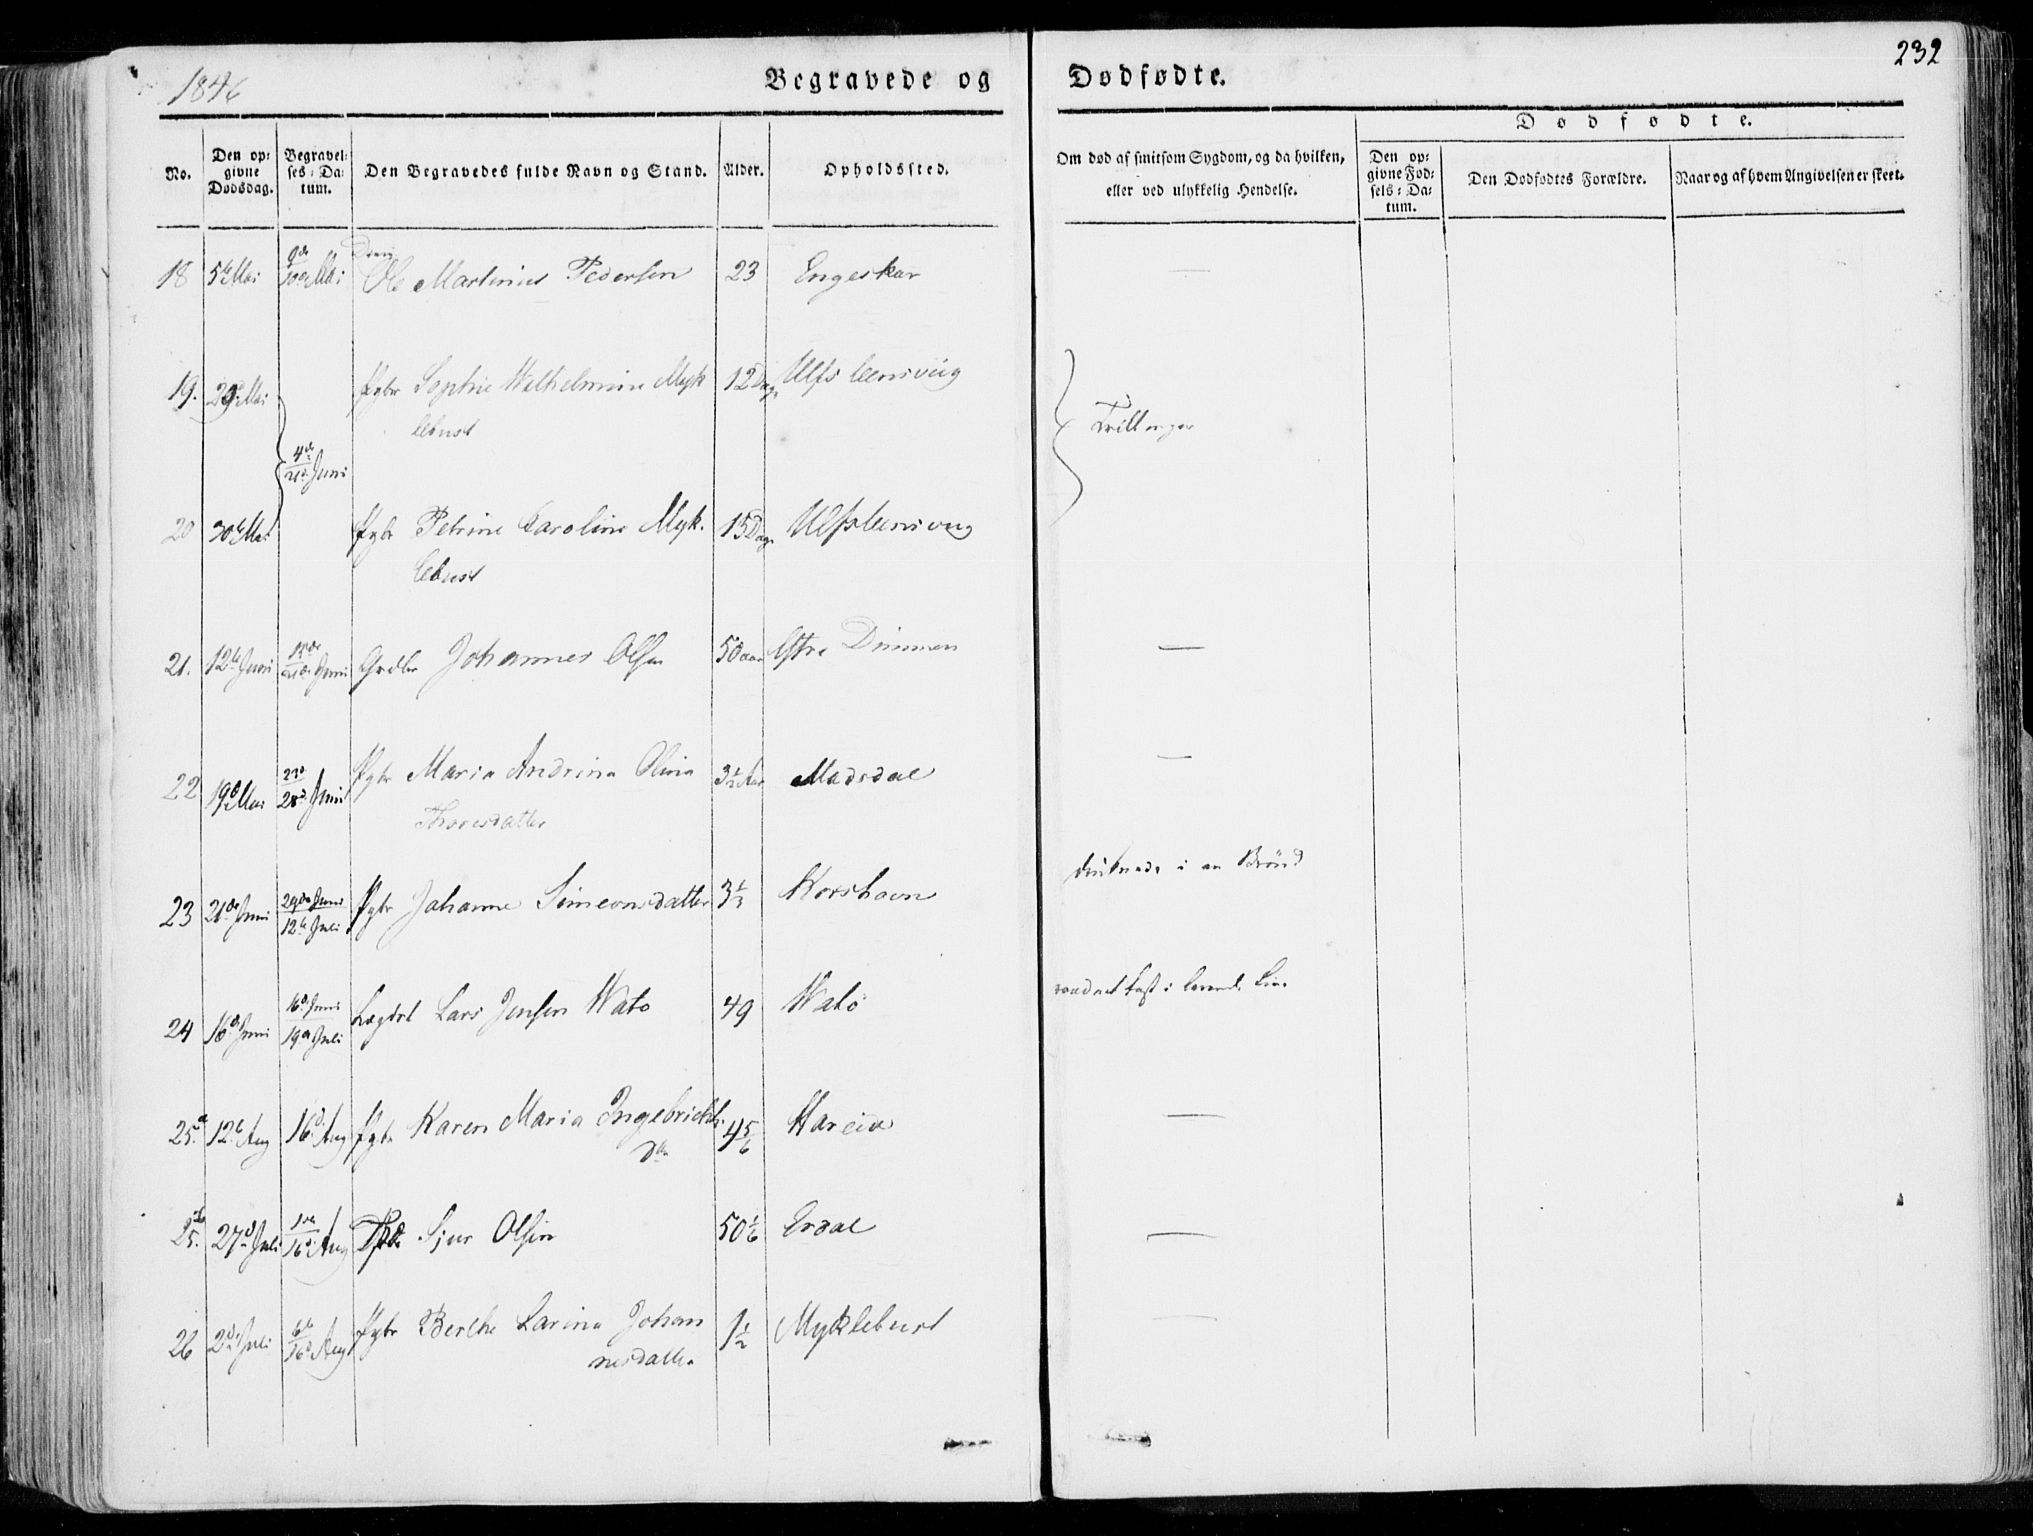 1846
Begravede og Dødfødte.
232
No.
Den opgivne Dødsdag.
Begravelses-Datum.
Den Begravedes fulde Navn og Stand.
Alder.
Opholdssted.
Om død af smitsom Sygdom, og da hvilken,
eller ved ulykkelig Hendelse.
Dødfødte.
Den opgivne Fødsels-Datum.
Den Dødfødtes Forældre.
Naar og af hvem Angivelsen er skeet.
18 5te Mai 9de/10de Mai Dreng Ole Martinus Pedersen 23 Engeskar —
19. 29de Mai Pgbr Sophie Wilhelmine Myk 12 Dage Ulfsteensviig
lebust
4de/21de Juni
Trillinger
20 30te Mai Pgbr Petrine Caroline Myk. 15 Dage Ulfsteensviig
lebust
21. 12te Juni Grdbr Johannes Olsen 50 aar Østre Dimmen —
22 19de Mai 23de/28de Juni Pgbr Maria Andrina Olivia 3½ Aar Madsdal —
Thoresdatter
23 21de Juni 29de Juni/12te Juli Pgbr Johanne Simeonsdatter 3⅓ Korshavn druknede i en Brønd
24 16de Juni 16de Juni/19de Juli Lægdsl Lars Jensen Watø 49 Watø
25.a 12te Aug 16de Aug Pgbr Karen Maria Ingebrigts 4⅚ Hareid —
dtr
25.b 27de Juli 1ste/16de Aug Sjur Olsen 50⅙ Erdal —
26 2den Juli 6te/16de Aug Pgbr Berthe Larina Johan 1½ Myklebust —
nesdatter